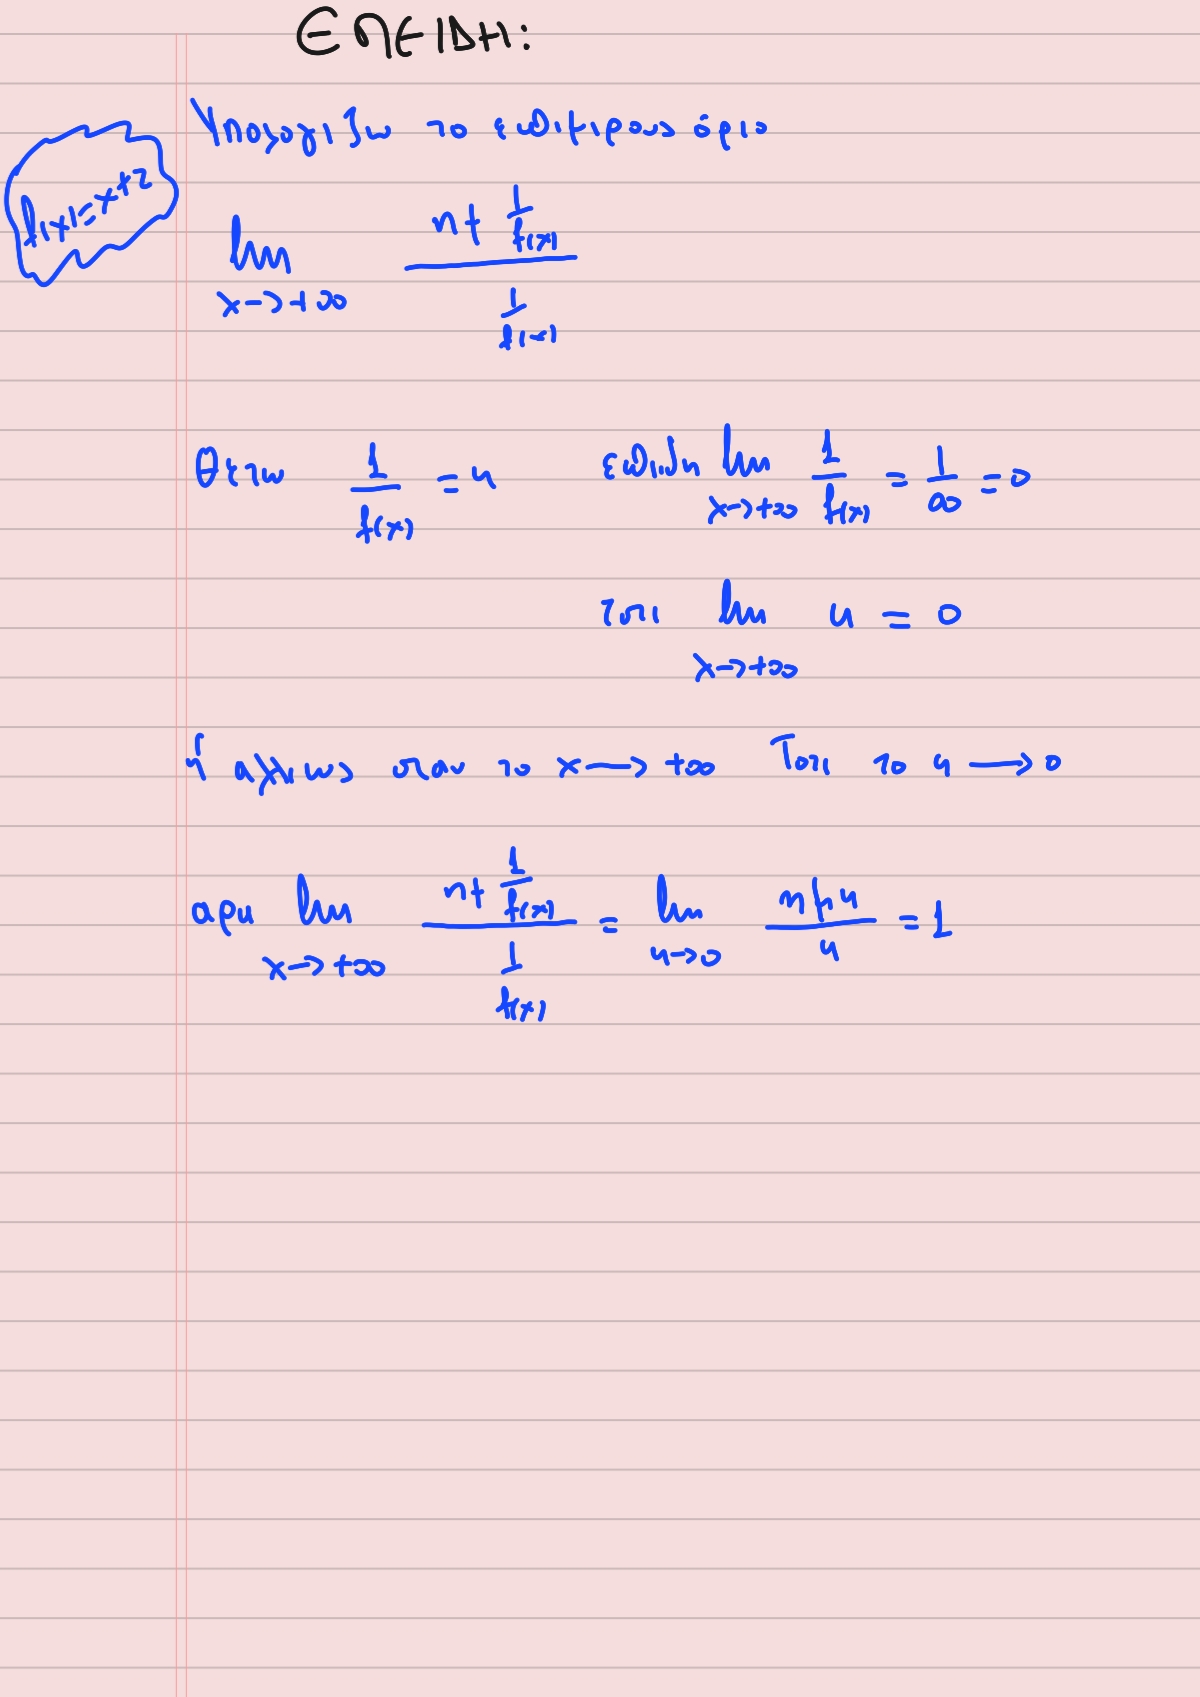 ΕΠΕΙΔΗ:
Υπολογιζω το επιμερους όριο
f(x)=x+2
lim x→+∞ ημ 1/f(x) / 1/f(x)
Θετω 1/f(x) = u επειδη lim x→+∞ 1/f(x) = 1/∞ = 0
τοτε lim x→+∞ u = 0
ή αλλιως οταν το x → +∞ Τοτε το u → 0
αρα lim x→+∞ ημ 1/f(x) / 1/f(x) = lim u→0 ημu/u = 1